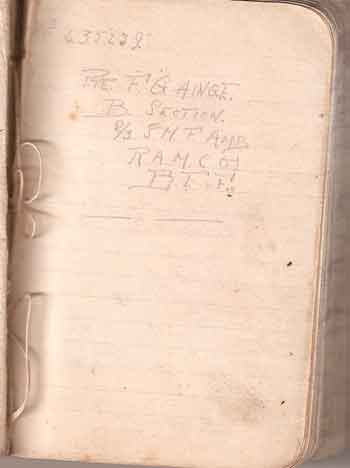 435239
Pte. F. G AINGE.
B SECTION.
2/1 S.M.F AMB
R.A.M.C (T)
B.E.F.